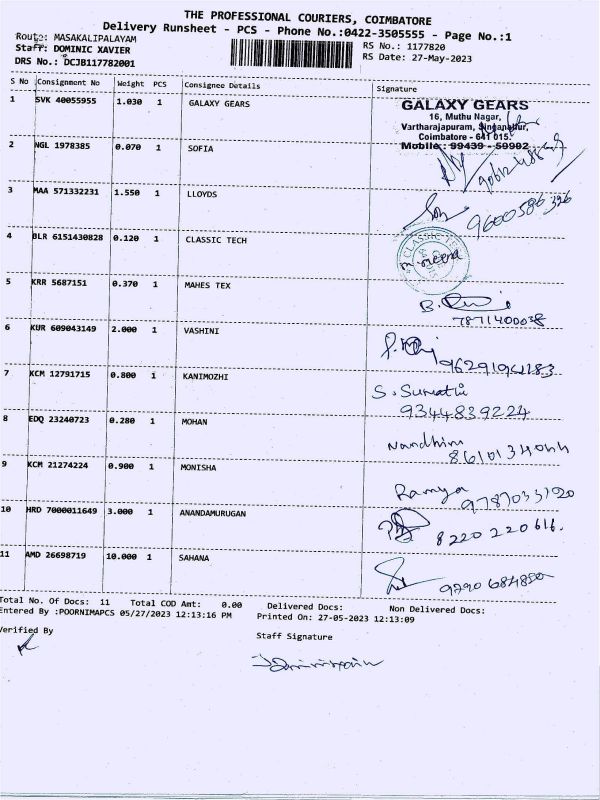 THE PROFESSIONAL COURIERS, COIMBATORE
Delivery Runsheet - PCS - Phone No.:0422-3505555 - Page No.:1
Route: MASAKALIPALAYAM
Staff: DOMINIC XAVIER
DRS No.: DCJB117782001
RS No.: 1177820
RS Date: 27-May-2023
S No Consignment No Weight PCS Consignee Details Signature
1 SVK 40055955 1.030 1 GALAXY GEARS
GALAXY GEARS
16, Muthu Nagar,
Vartharajapuram, Singanallur,
Coimbatore - 641 015.
Mobile: 99439 - 59902
2 NGL 1978385 0.070 1 SOFIA
3 MAA 571332231 1.550 1 LLOYDS
9600586396
4 BLR 6151430828 0.120 1 CLASSIC TECH
CLASSIC TE
5 KRR 5687151 0.370 1 MAHES TEX
7871400038
6 KUR 609043149 2.000 1 VASHINI
7 KCM 12791715 0.800 1 KANIMOZHI
S. Sumathi
9344839224
8 EDQ 23240723 0.280 1 MOHAN
Nandhini
9 KCM 21274224 0.900 1 MONISHA
Ramya
9787033120
10 HRD 7000011649 3.000 1 ANANDAMURUGAN
8220 220 616.
11 AMD 26698719 10.000 1 SAHANA
Total No. Of Docs: 11 Total COD Amt: 0.00 Delivered Docs: Non Delivered Docs:
Entered By :POORNIMAPCS 05/27/2023 12:13:16 PM Printed On: 27-05-2023 12:13:09
Verified By
Staff Signature